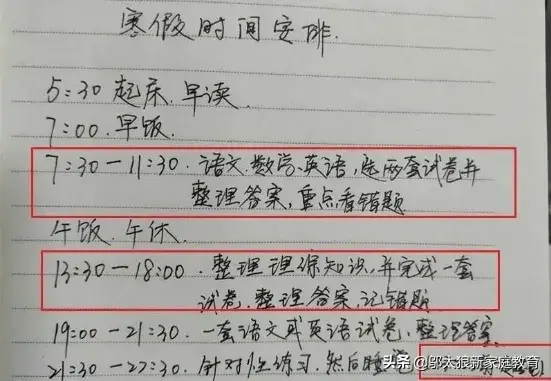 寒假时间安排.
5:30 起床. 早读.
7:00. 早饭.
7:30-11:30. 语文.数学.英语,选两套试卷并
整理答案,重点看错题
午饭. 午休.
13:30-18:00. 整理理综知识,并完成一套
试卷.整理答案.记错题.
19:00-21:30. 一套语文或英语试卷,整理答案.
21:30-22:30. 针对 练习.然后睡觉
头条 @邬大狼新家庭教育